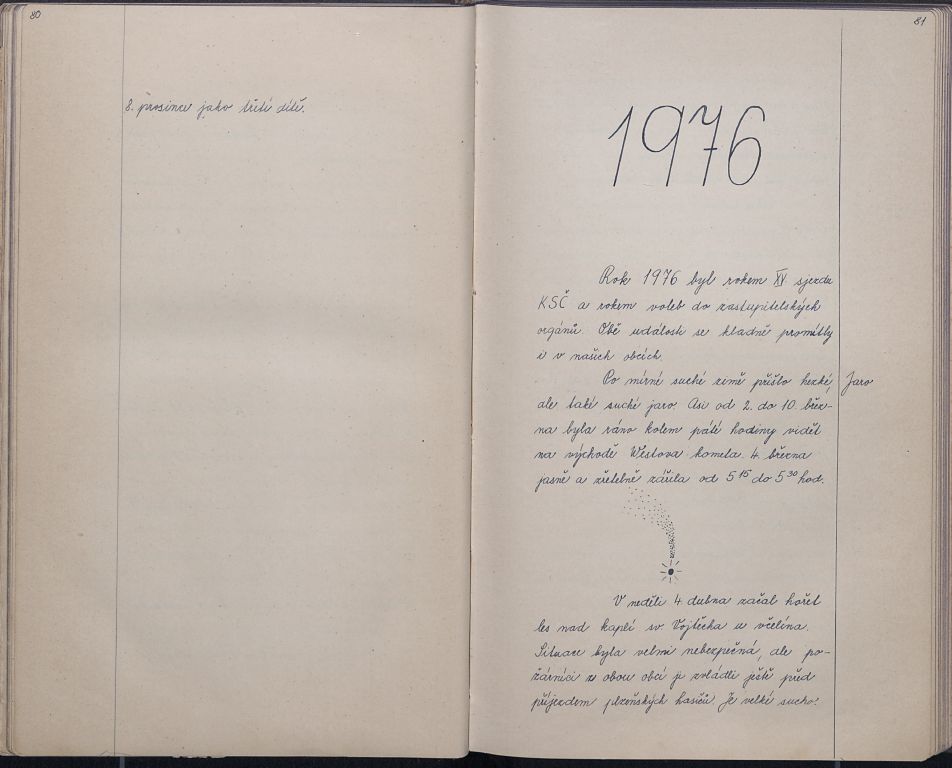 80
8. prosince jako třetí dítě.
81
1976
Rok 1976 byl rokem XV. sjezdu
KSČ a rokem voleb do zastupitelských
orgánů. Obě události se kladně promítly
i v našich obcích.
Po mírné suché zimě přišlo hezké,
Jaro
ale také suché jaro. Asi od 2. do 10. břez-
na byla ráno kolem páté hodiny vidět
na východě Westova kometa. 4. března
jasně a zřetelně zářila od 5 15 do 5 30 hod.
V neděli 4. dubna začal hořet
les nad kaplí sv. Vojtěcha u včelína.
Situace byla velmi nebezpečná, ale po-
žárníci z obou obcí ji zvládli ještě před
příjezdem plzeňských hasičů. Je velké sucho!